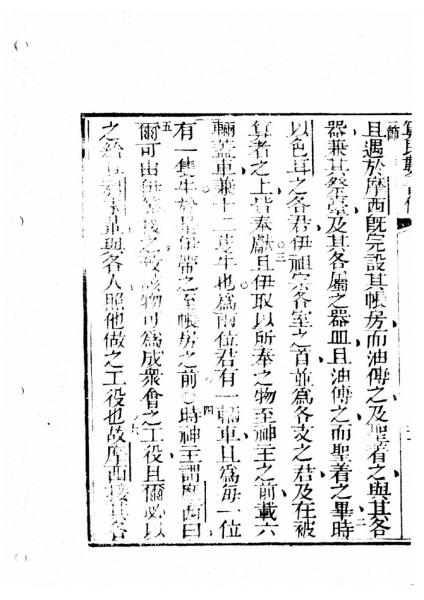 且遇於摩西既完設其帳房而油傅之及聖着之與其各
器兼其祭臺及其各屬之器皿且油傅之而聖着之畢時
以色耳之各君伊祖宗各室之首並爲各支之君及在被
算者之上皆奉獻且伊取以所奉之物至神主之前載六
輛蓋車兼十二隻牛也爲兩位君有一輛車且爲每一位
有一隻牛於是伊帶之至帳房之前○時神主謂摩西曰
爾可由伊等接之致該物可爲成衆會之工役且爾必以
之給輩與各人照他做之工役也故摩西接其各